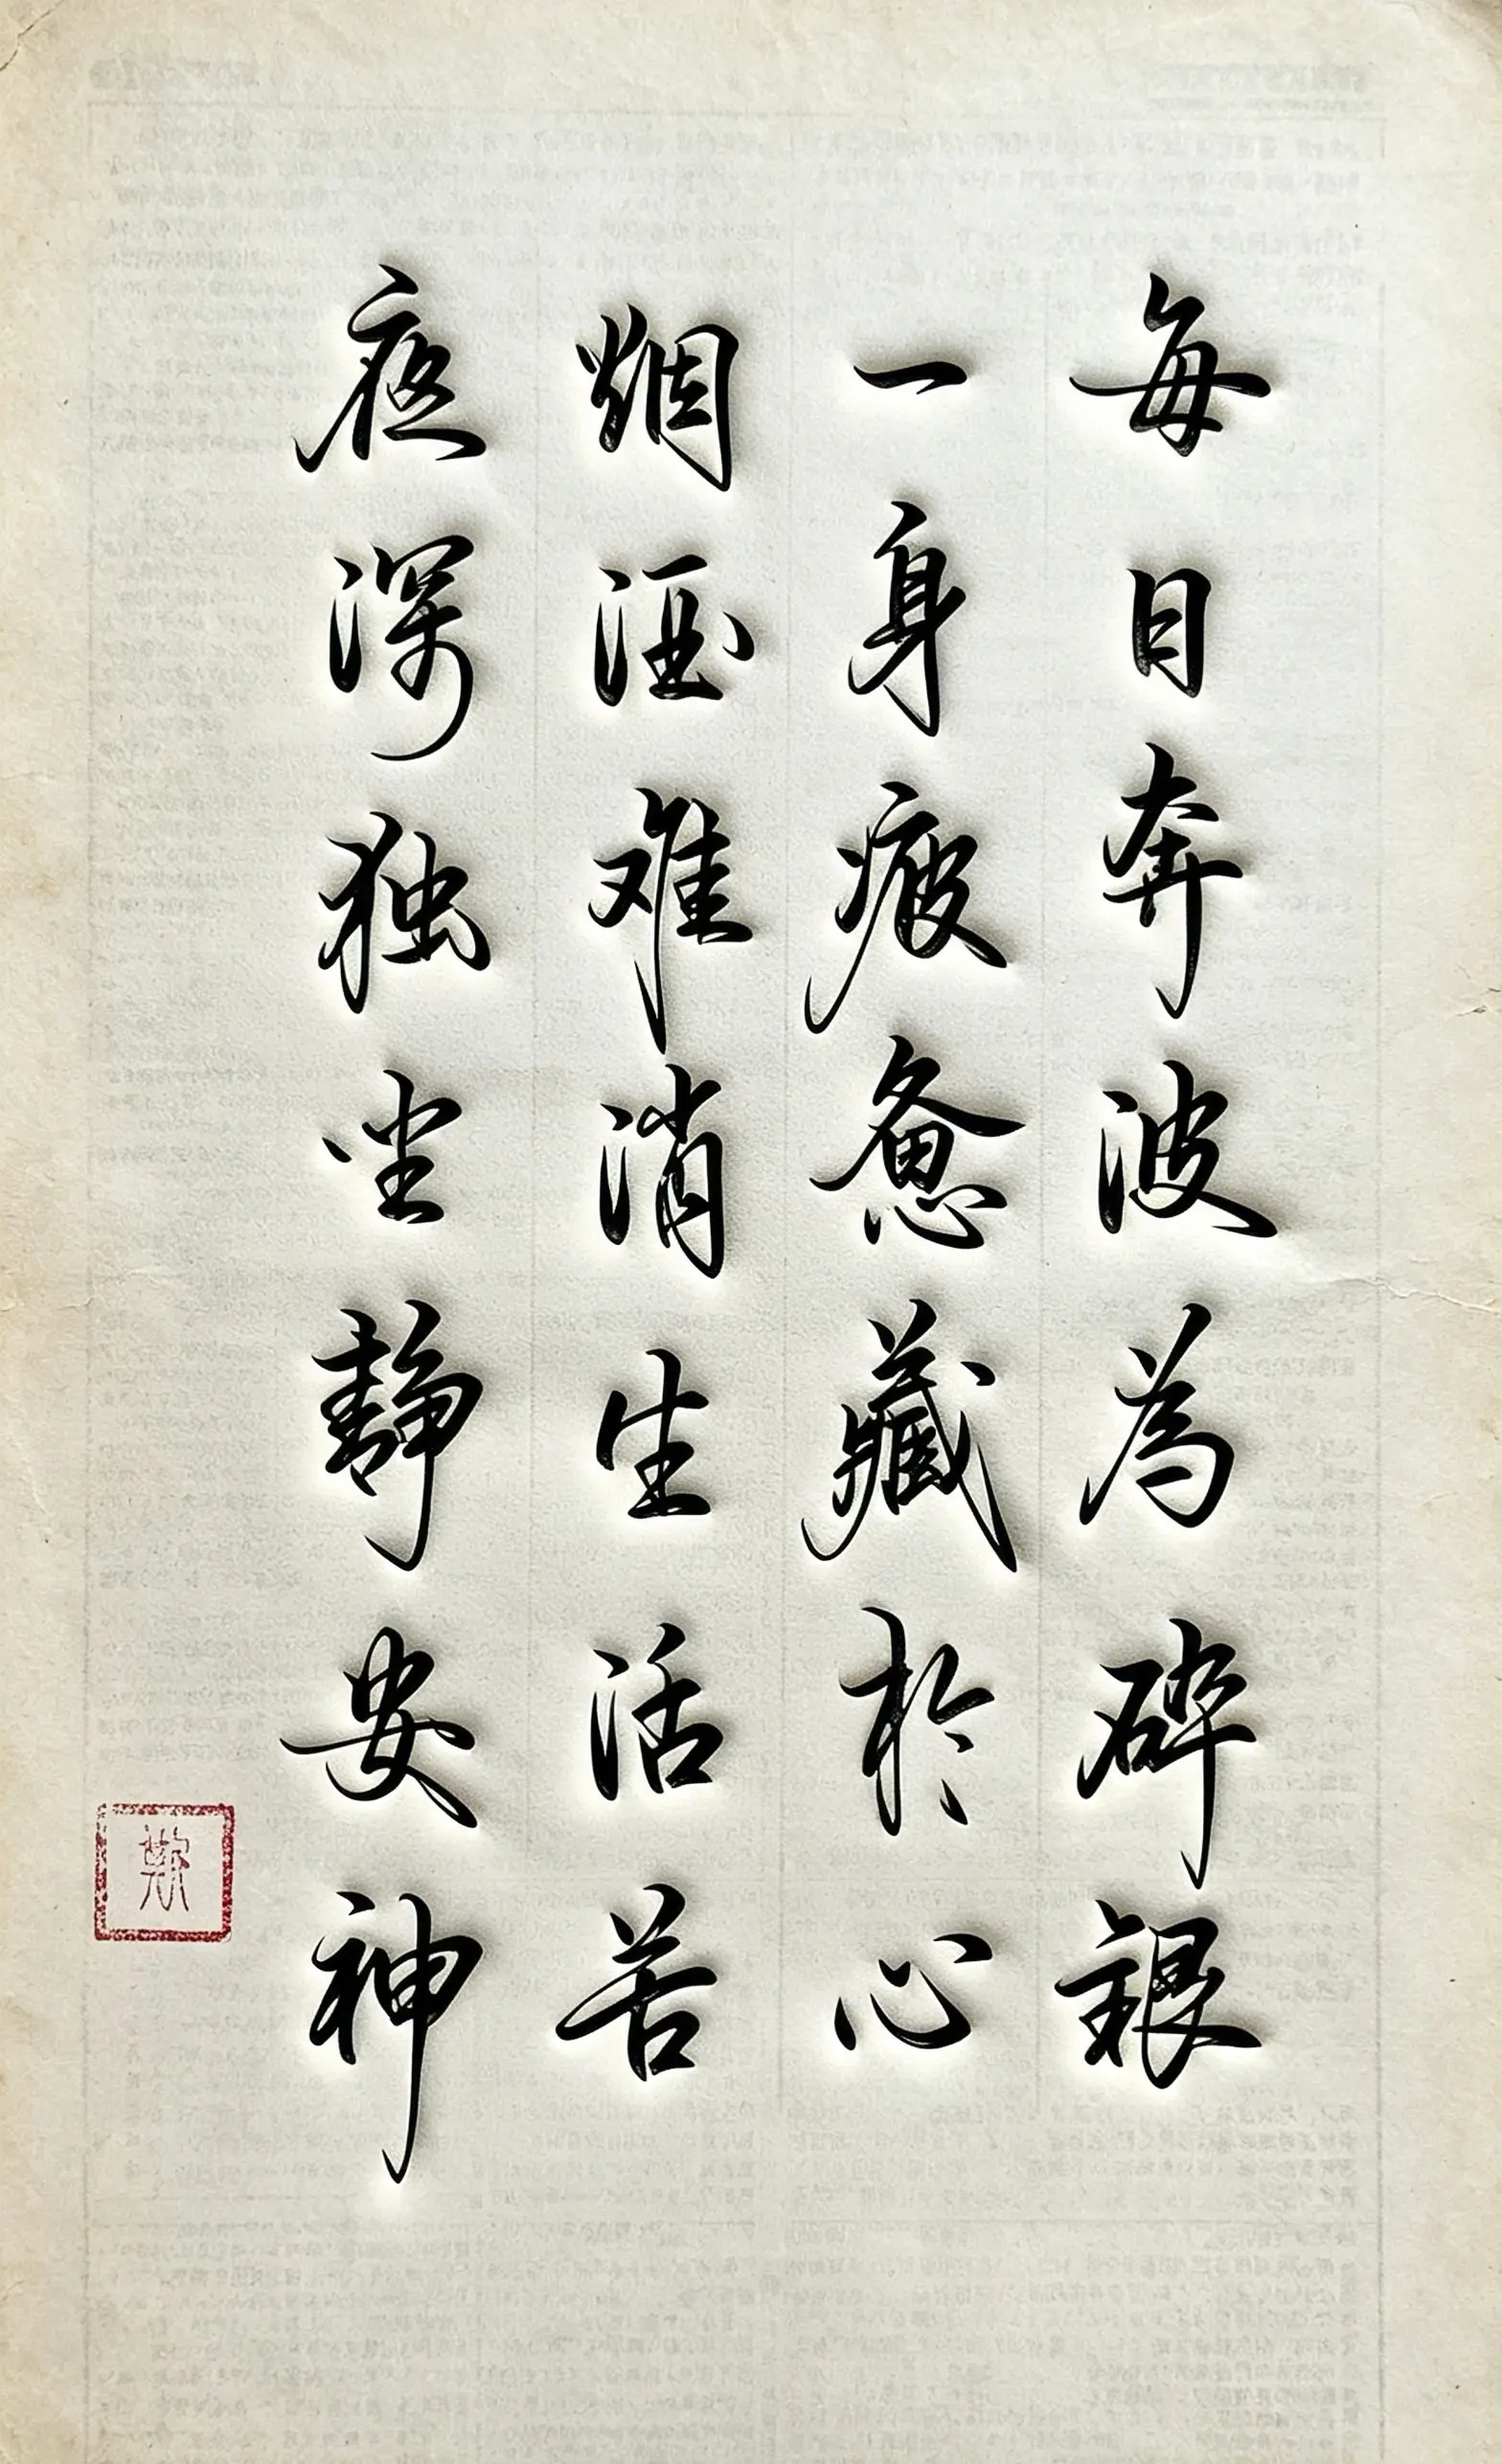 每日奔波為碎銀
一身疲惫藏於心
烟酒难消生活苦
夜深独坐静安神